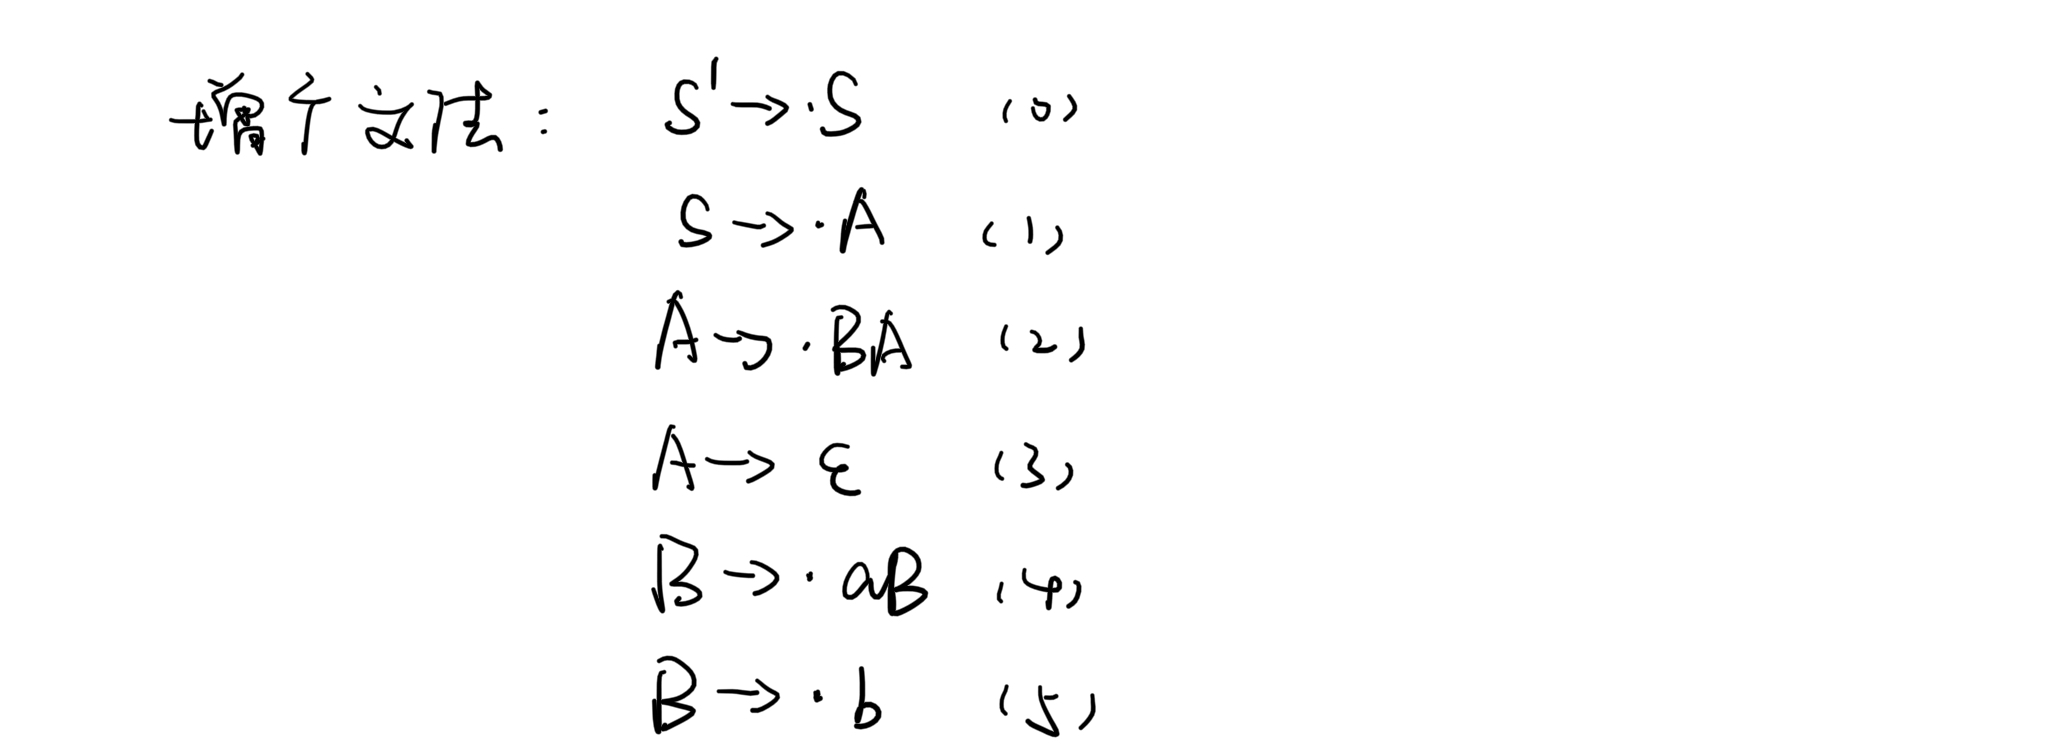 增广文法: S' → ·S (0)
S → ·A (1)
A → ·BA (2)
A → ε (3)
B → ·aB (4)
B → ·b (5)